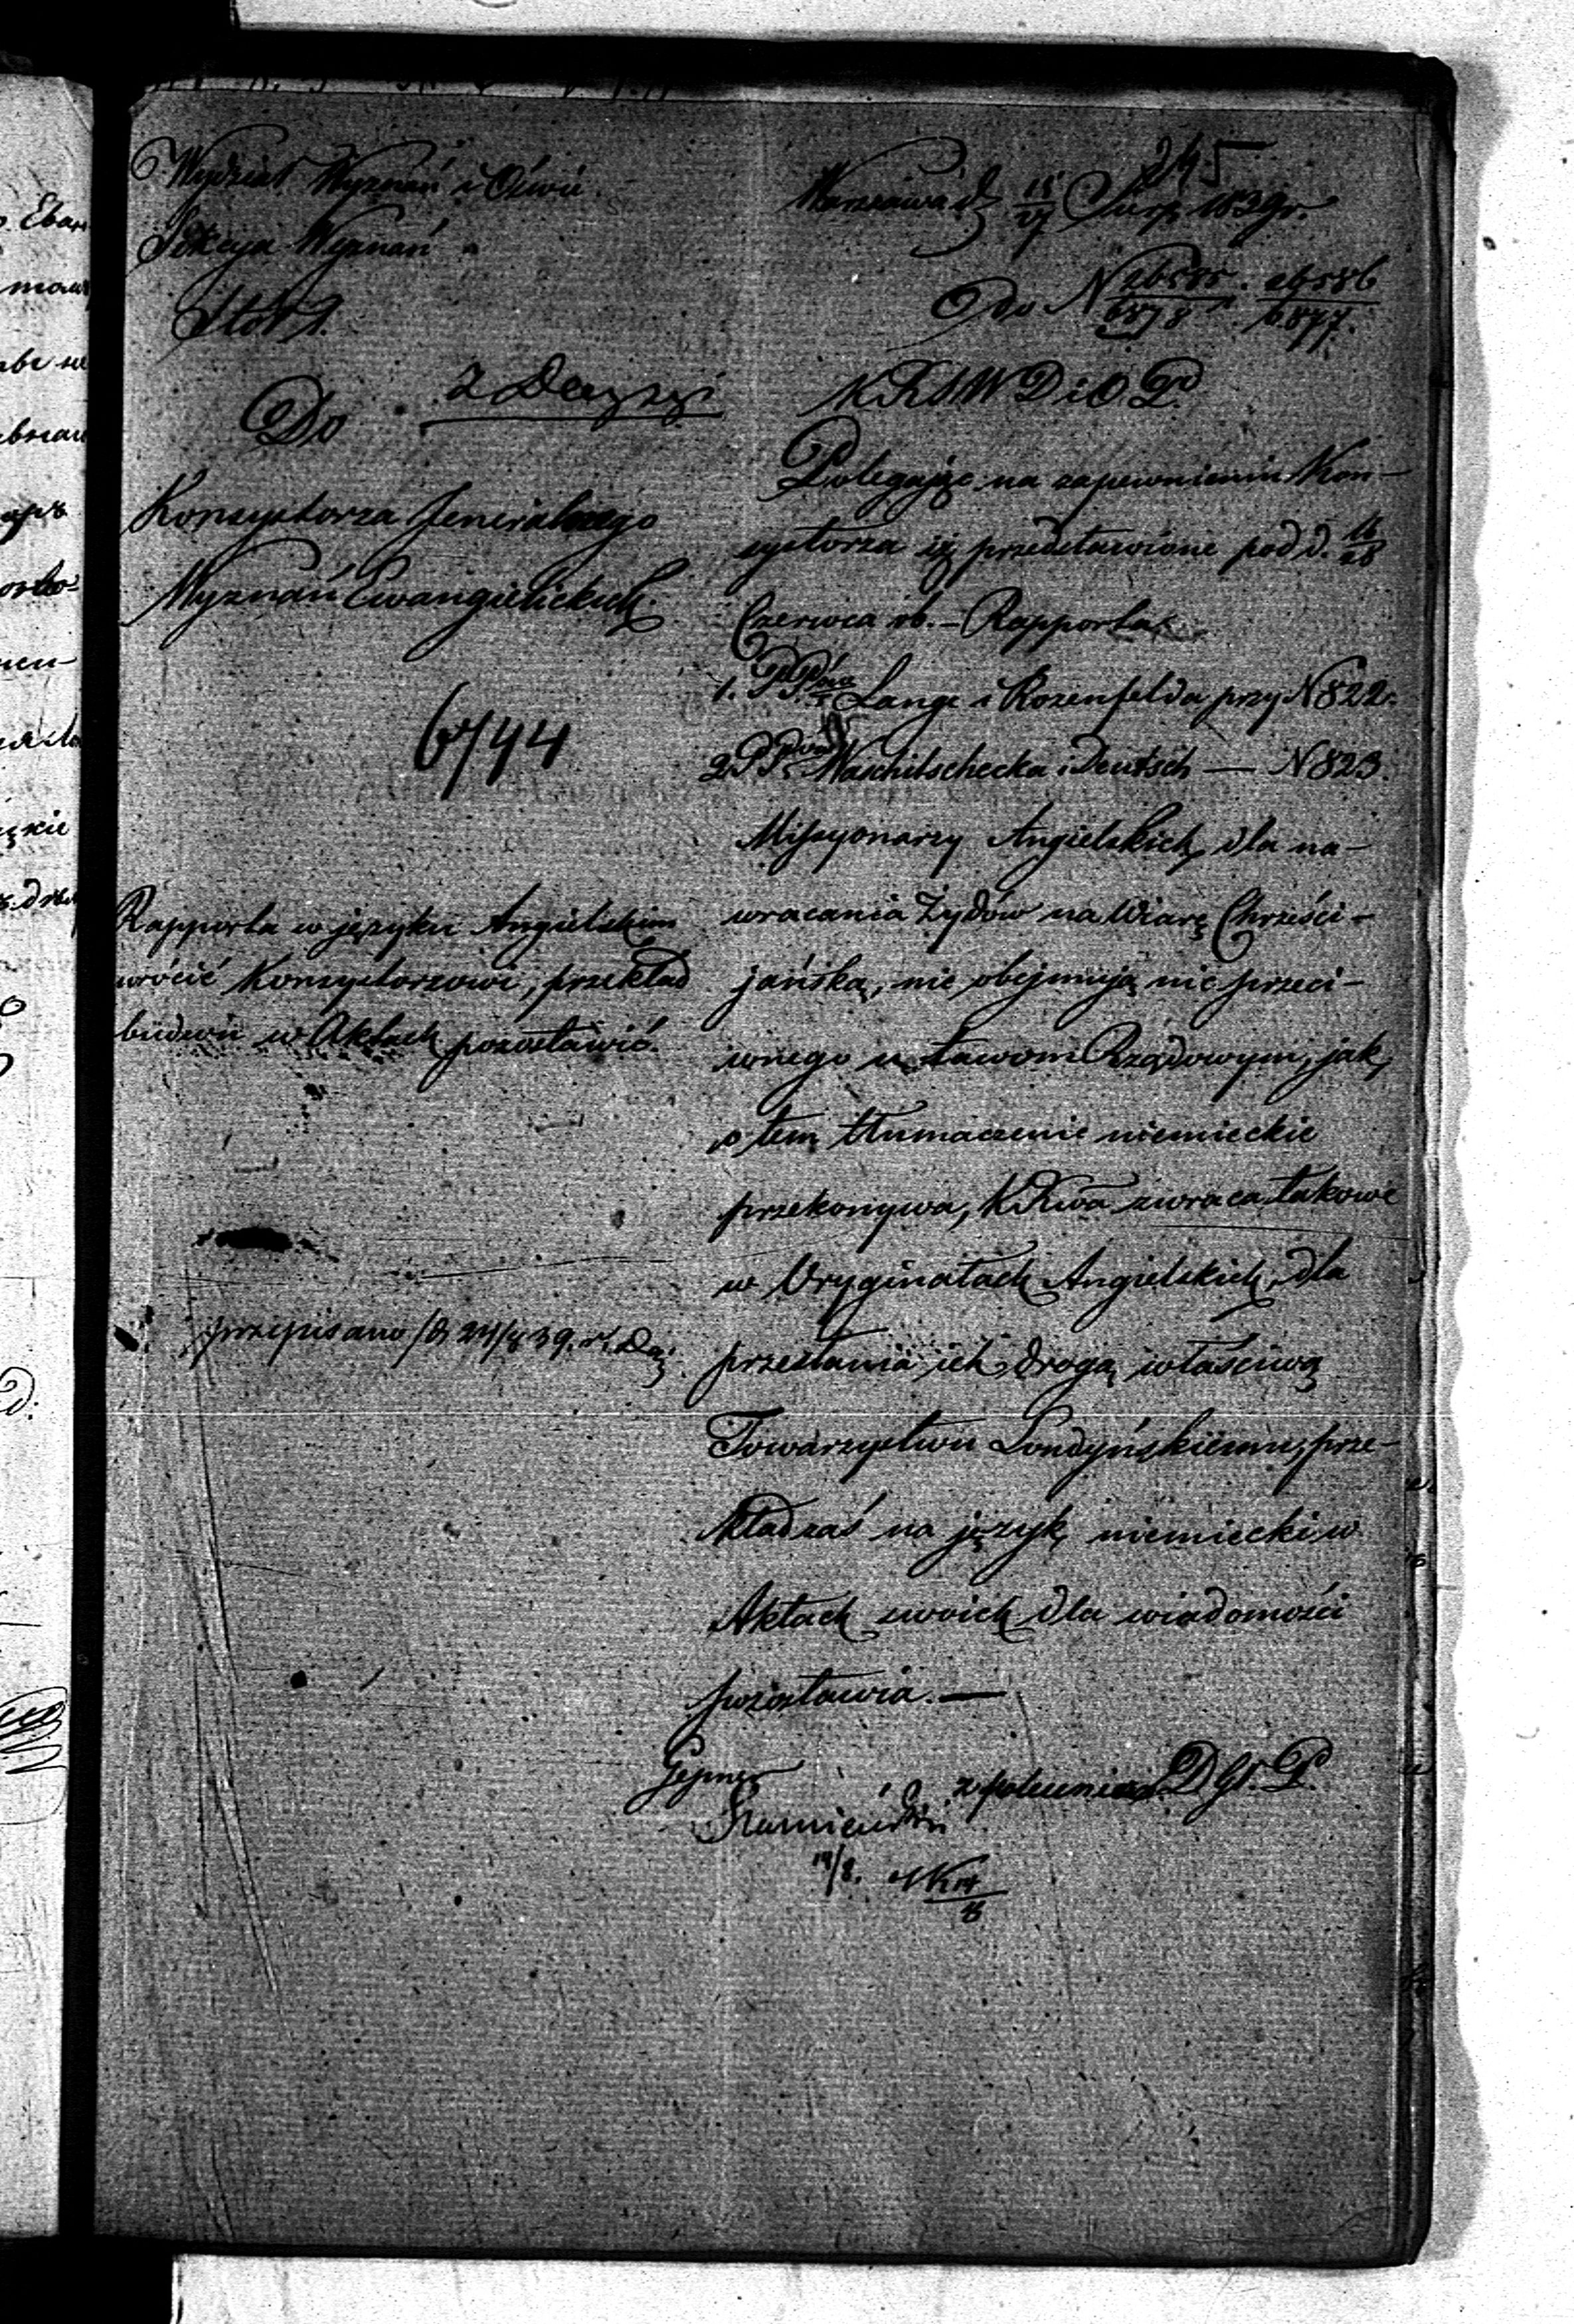 245
Wydział Wyznań i Oświe.
Sekcyja Wyznań
Stół 1.
Warszawa d. 15/27 Sierp. 1839 r.
Do N 26585/6878. 26586/6877.
Z Decyzyi
Do
Konsystorza Jeneralnego
Wyznań Ewangielickich.
6744
Rapporta w języku Angielskim
wrócić Konsystorzowi, przekład
w Aktach pozostawić.
przepisano 24/8 39. r.
KRSWDiOP.
Polegając na zapewnieniu Kon-
systorza iż przedstawione pod d. 16/28
Czerwca rb. – Rapporta
1. PPów Lange i Rozenfelda przy N 822.
2. PPów Waschitschecka i Deutsch — N 823.
Missyonarzy Angielskich dla na-
wracania Żydów na Wiarę Chrześci-
jańską, nie obejmują nic przeci-
wnego ustawom Rządowym, jak
o tem tłumaczenie niemieckie
przekonywa, KRwa zwraca takowe
w Oryginałach Angielskich, dla
przesłania ich drogą właściwą
Towarzystwu Londyńskiemu, prze-
kład zaś na język niemiecki w
Aktach swoich dla wiadomości
pozostawia. —
z polecenia D Gł. P.